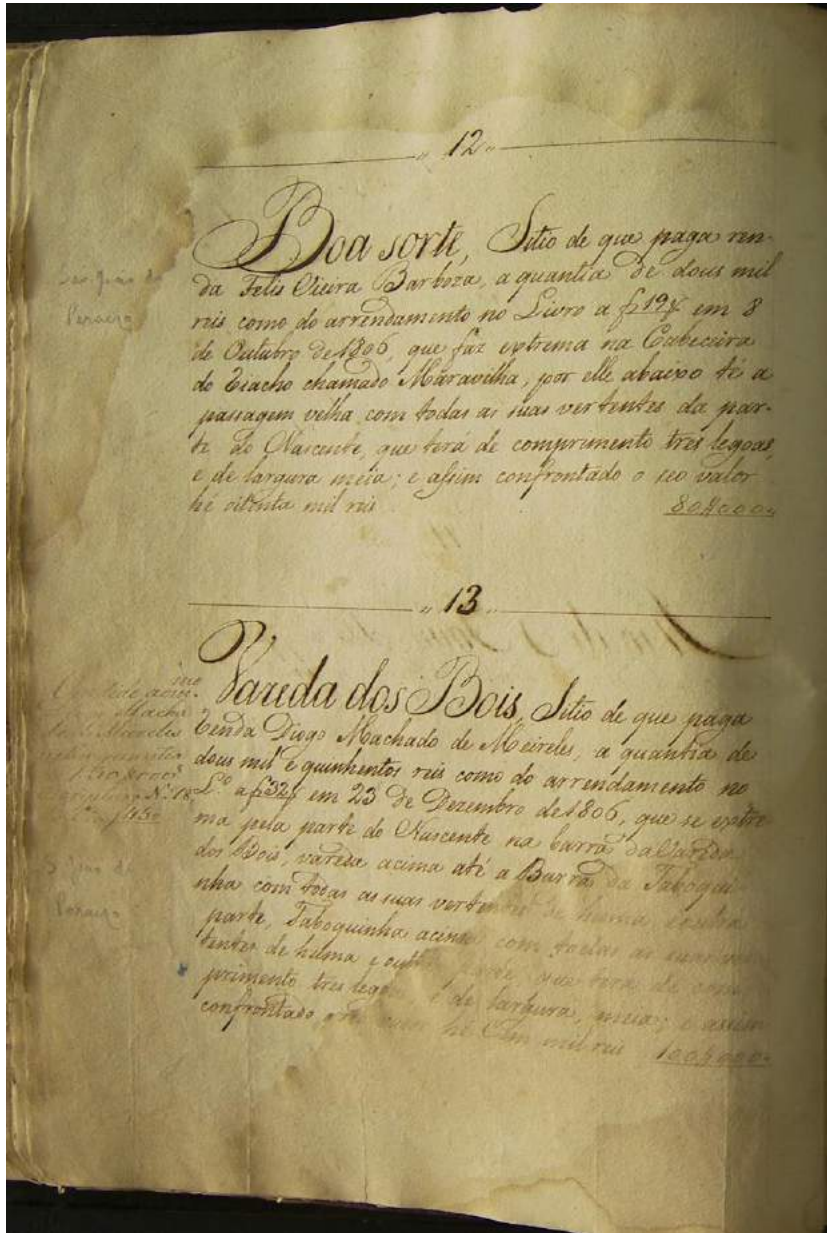 " 12 "
Boa sorte, Sitio de que paga ren-
da Felis Vieira Barboza, a quantia de dous mil
reis como do arrendamento no Livro a f 19 em 8
de Outubro de 1806, que faz extrema na Cabeceira
do Riacho chamado Maravilha, por elle abaixo té a
passagem velha com todas as suas vertentes da par-
te do Nascente, que terá de comprimento tres legoas,
e de largura meia; e assim confrontado o seo valor
hé oitenta mil reis 80$000
" 13 "
Vareda dos Bois, Sitio de que paga
Renda Diogo Machado de Meireles, a quantia de
dous mil e quinhentos reis como do arrendamento no
L.º a f 32 em 23 de Dezembro de 1806, que se extre
ma pela parte do Nascente na barra da Vareda
dos Bois, vareda acima até a Barra da Taboqui
nha com todas as suas vertentes de huma e outra
parte, Taboquinha acima com todas as suas ver
tentes de huma e outra parte, que terá de com
primento tres legoas e de largura, meia; e assim
confrontado hé Cem mil reis 100$000